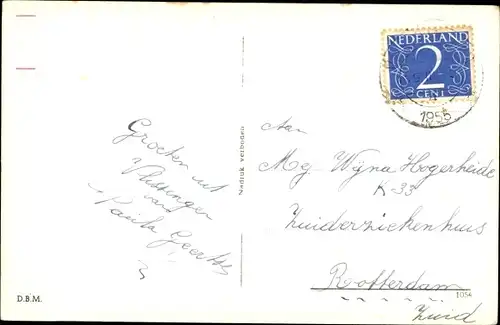 NEDERLAND
2
CENT
1955
Groeten uit
Vlissingen
van
Paula Geerts
Nadruk verboden
Aan
Mej. Wyna Hogerheide
K 33
Zuiderziekenhuis
Rotterdam
Zuid
D.B.M.
1054